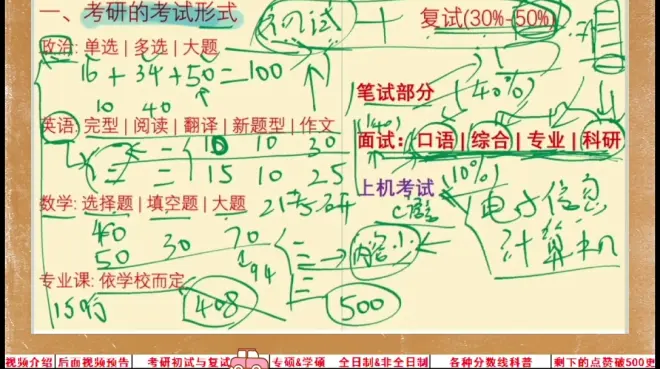 一、考研的考试形式
初试 + 复试(30%-50%)
政治: 单选 | 多选 | 大题
16 + 34 + 50 = 100
笔试部分 (40%)
10 40
英语: 完型 | 阅读 | 翻译 | 新题型 | 作文
(40) 面试: 口语 | 综合 | 专业 | 科研
一 = 10 10 30
二 = 15 10 25
上机考试 (10%)
C语言
电子信息
计算机
数学: 选择题 | 填空题 | 大题
21考研
40
50 30 70
94
一
二
三
内容小
专业课: 依学校而定
150分 408 500
视频介绍 后面视频预告 考研初试与复试 专硕&学硕 全日制&非全日制 各种分数线科普 剩下的点赞破500更